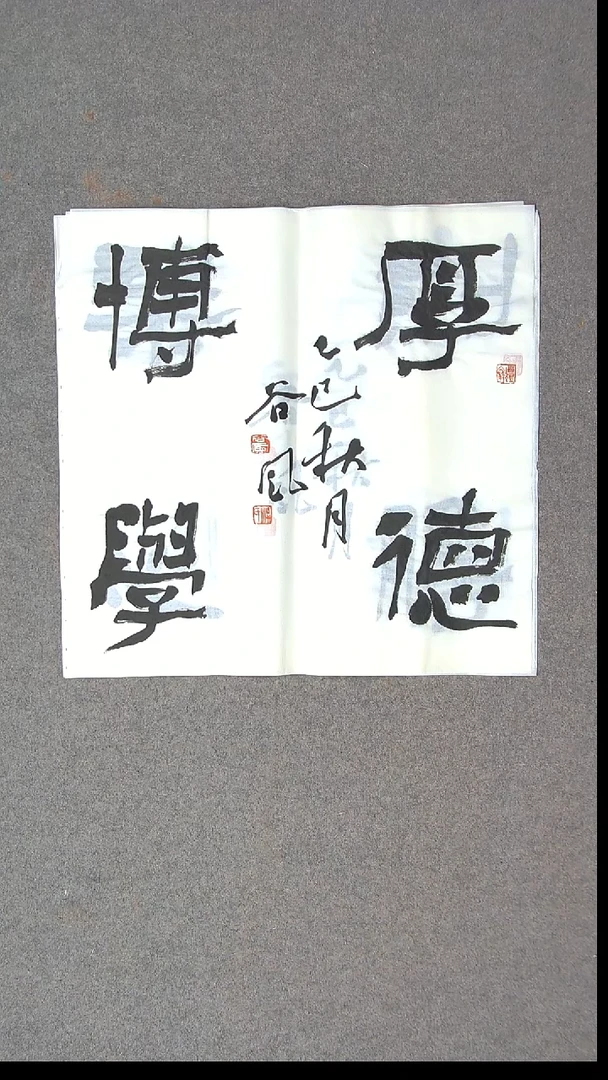 厚德
博學
乙巳秋月
谷風